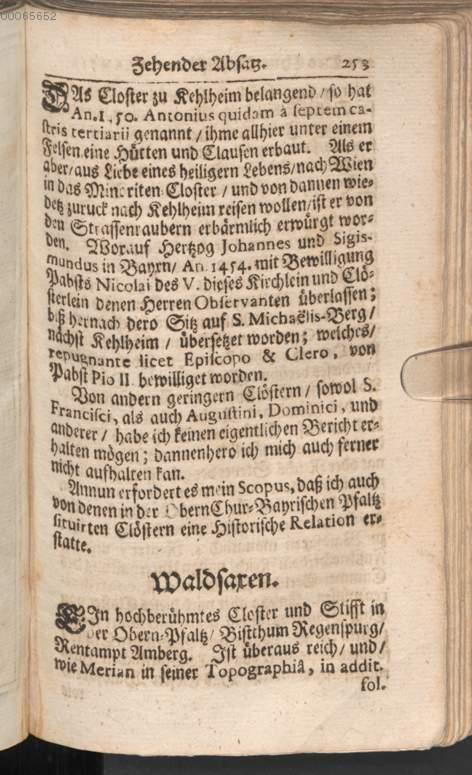 00065652
Zehender Absatz. 253
DAs Closter zu Kehlheim belangend / so hat
An. 1450. Antonius quidam à septem ca-
stris tertiarii genannt / ihme allhier unter einem
Felsen eine Hütten und Clausen erbaut. Als er
aber / aus Liebe eines heiligern Lebens / nach Wien
in das Minoriten Closter / und von dannen wie-
detz zuruck nach Kehlheim reisen wollen / ist er von
den Strassenraubern erbärmlich erwürgt wor-
den. Worauf Hertzog Johannes und Sigis-
mundus in Bayrn / An. 1454. mit Bewilligung
Pabsts Nicolai des V. dieses Kirchlein und Clö-
sterlein denen Herren Observanten überlassen;
biß hernach dero Sitz auf S. Michaëlis-Berg /
nächst Kehlheim / übersetzet worden; welches /
repugnante licet Episcopo & Clero, von
Pabst Pio II. bewilliget worden.
Von andern geringern Clöstern / sowol S.
Francisci, als auch Augustini, Dominici, und
anderer / habe ich keinen eigentlichen Bericht er-
halten mögen; dannenhero ich mich auch ferner
nicht aufhalten kan.
Annun erfordert es mein Scopus, daß ich auch
von denen in der ObernChur-Bayrischen Pfaltz
situirten Clöstern eine Historische Relation er-
statte.
Waldsaxen.
EIn hochberühmtes Closter und Stifft in
der Obern-Pfaltz / Bistthum Regenspurg /
Rentampt Amberg. Ist überaus reich / und /
wie Merian in seiner Topographiâ, in addit.
fol.